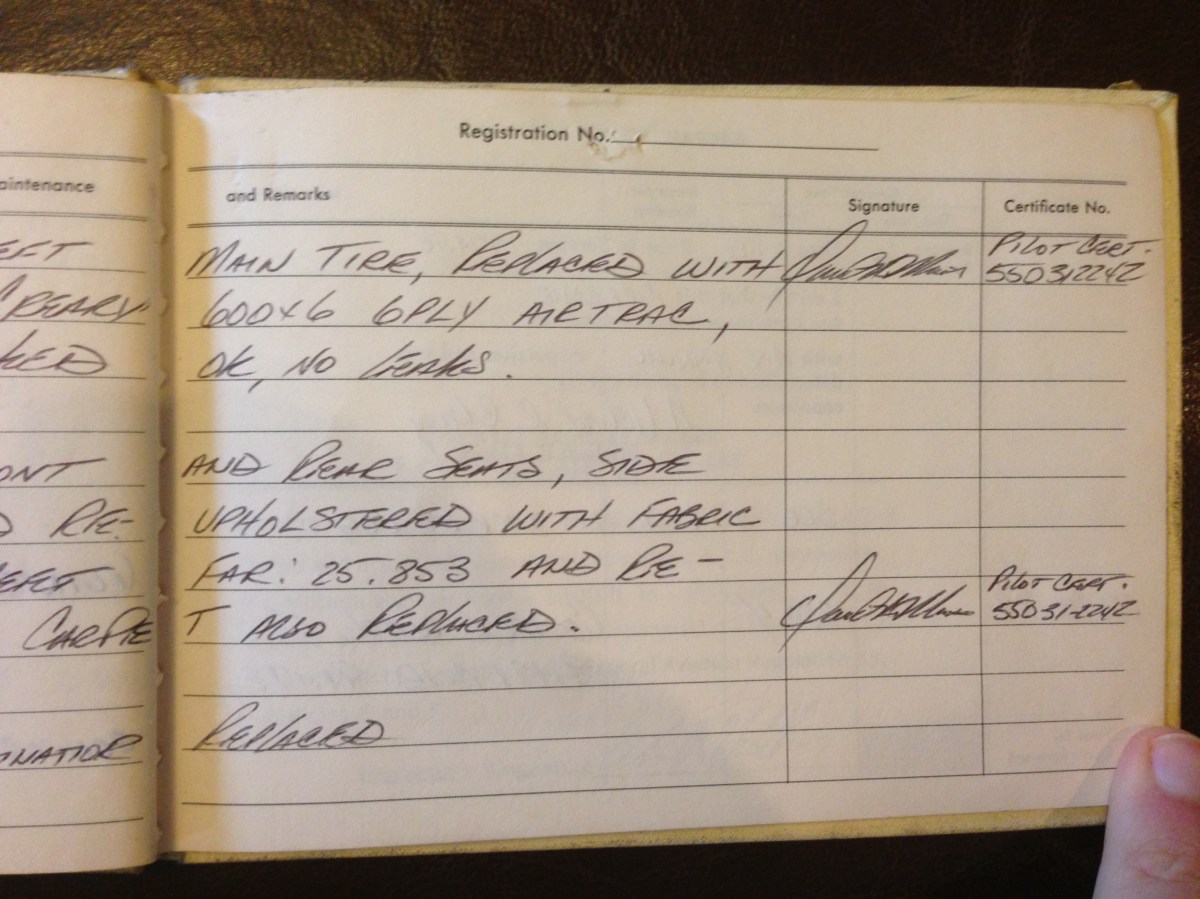 Registration No.
aintenance
and Remarks
Signature
Certificate No.
EFT
MAIN TIRE, REPLACED WITH
PILOT CERT.
550312242
CREARY
600X6 6PLY AIRTRAC,
KED
OK, NO LEAKS.
ONT
AND REAR SEATS, SIDE
D RE-
UPHOLSTERED WITH FABRIC
LEFT
FAR: 25.853 AND RE-
PILOT CERT.
550312242
CARPE
T ALSO REPLACED.
REPLACED
INATIOR